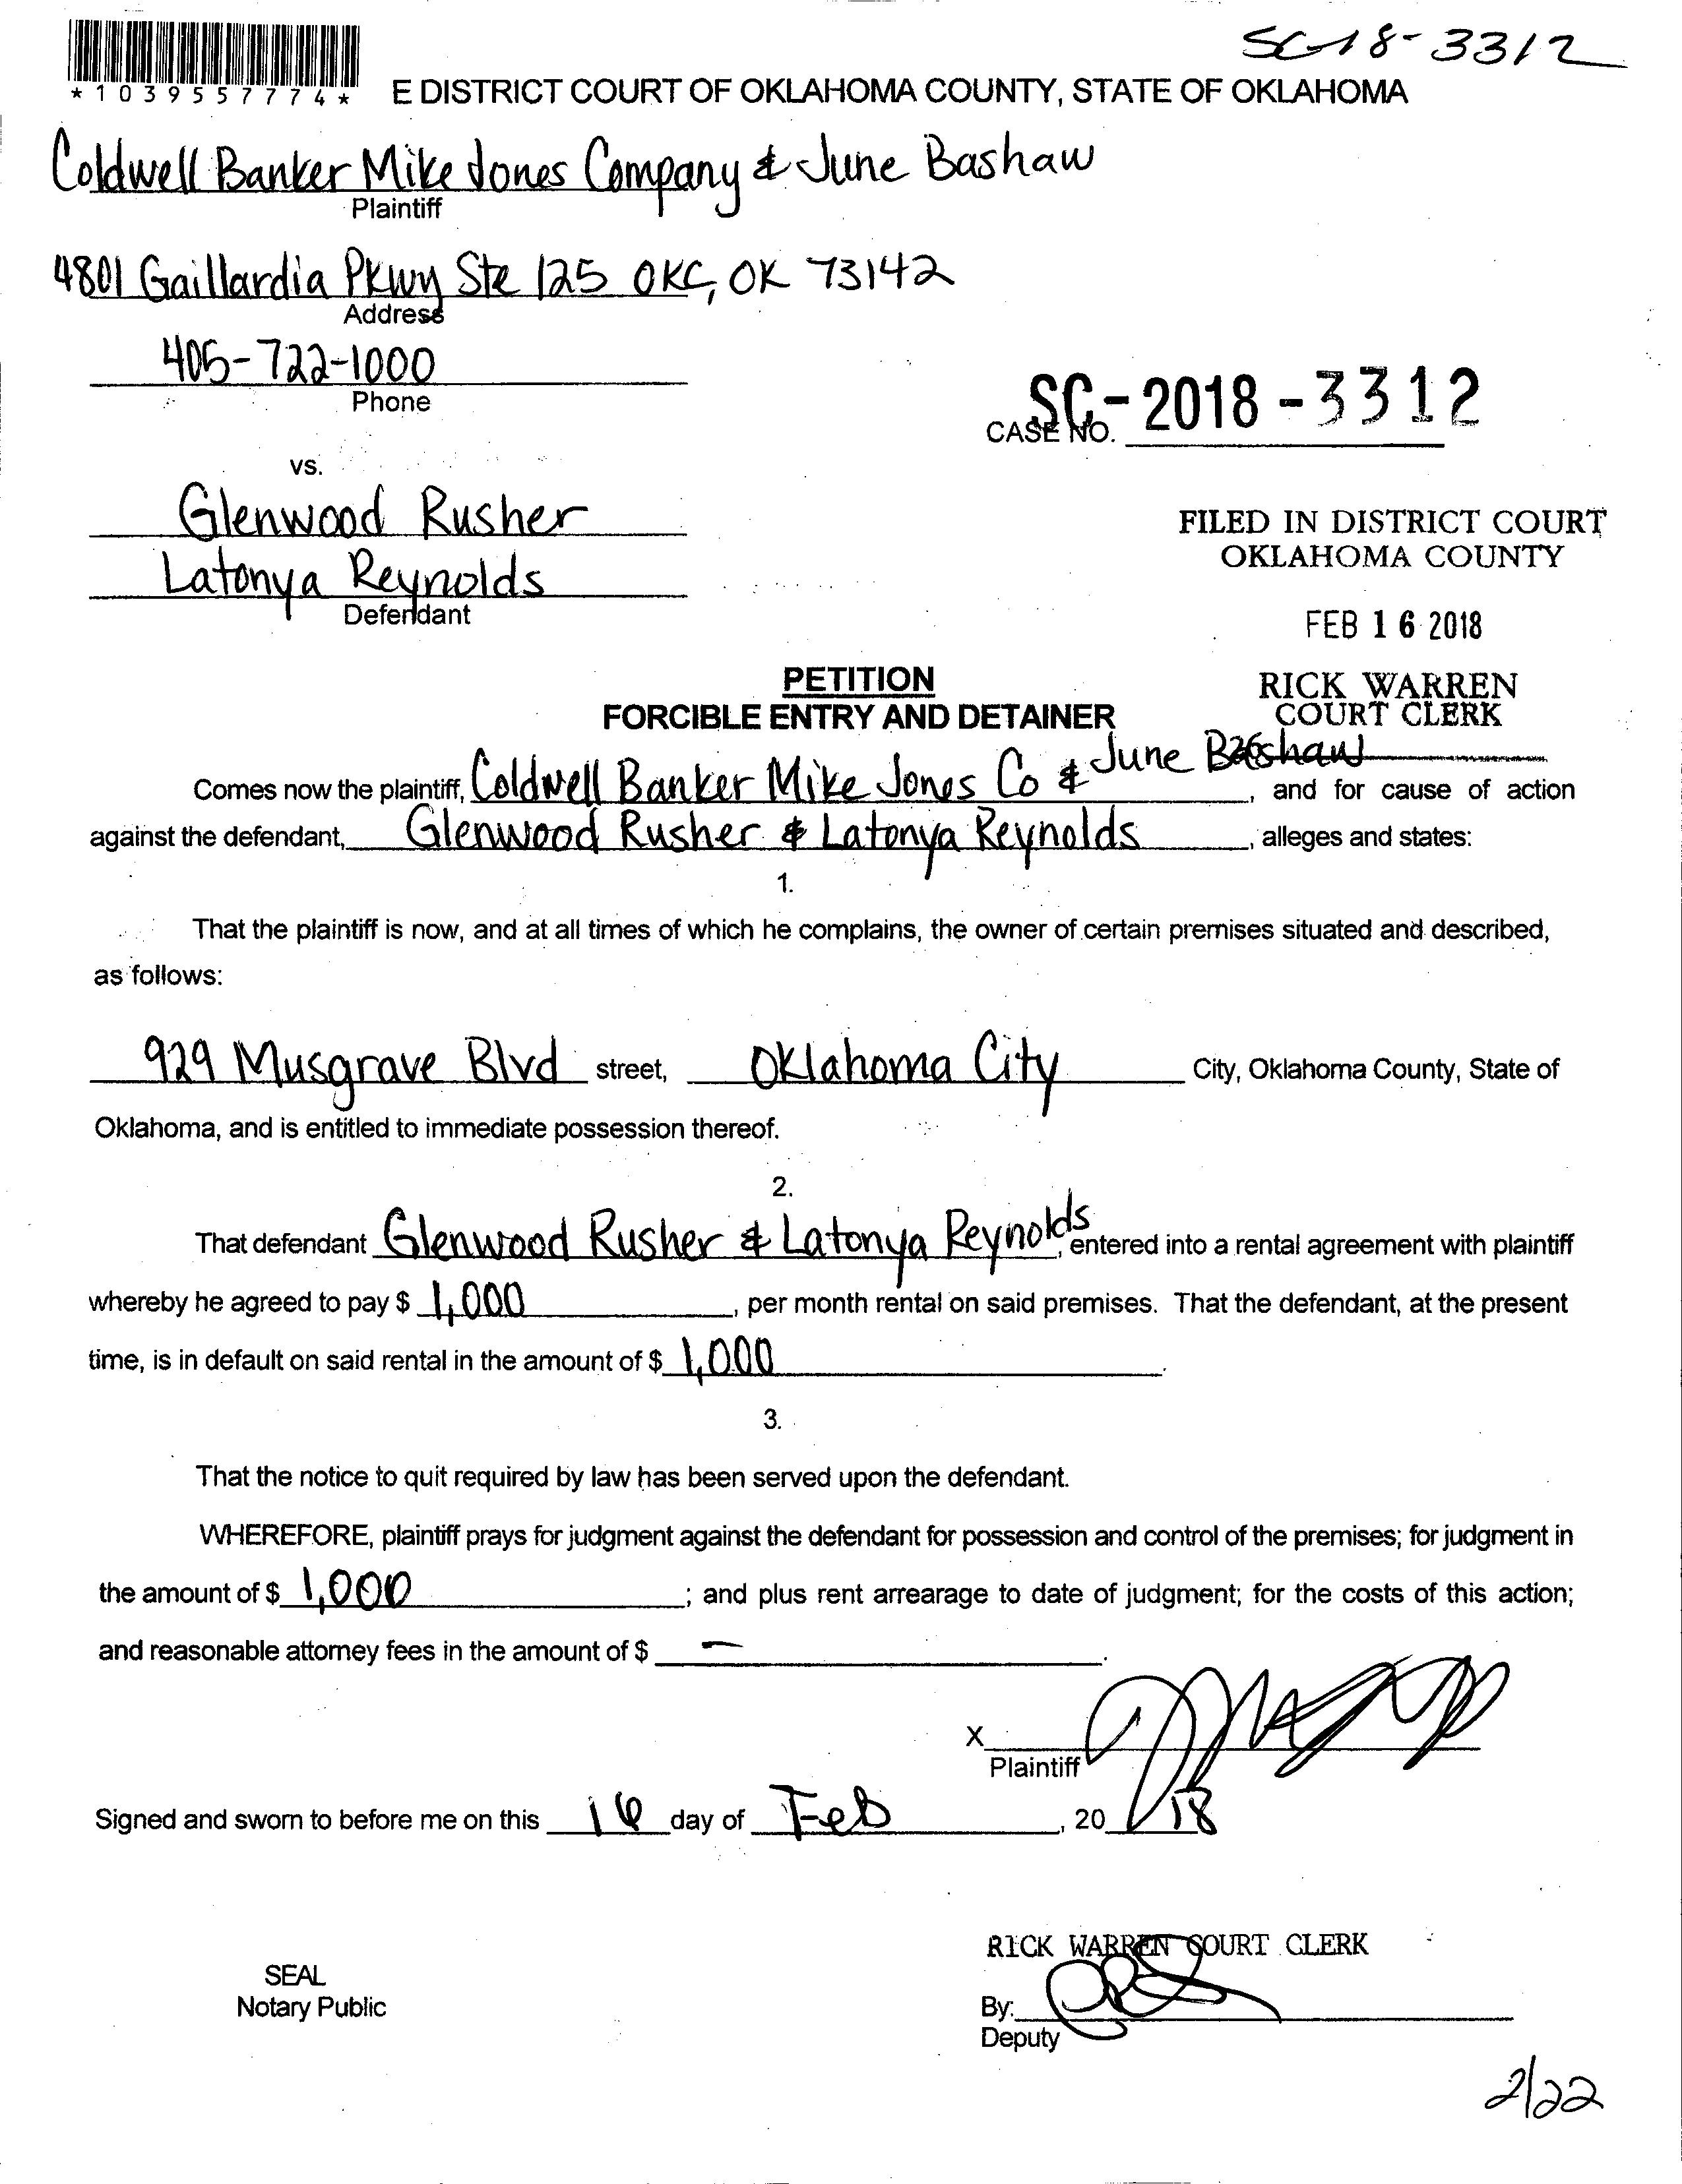 SC-18-3312
*1039557774*
E DISTRICT COURT OF OKLAHOMA COUNTY, STATE OF OKLAHOMA
Coldwell Banker Mike Jones Company & June Bashaw
Plaintiff
4801 Gaillardia Pkwy Ste 125 OKC, OK 73142
Address
405-722-1000
Phone
CASE NO. SC-2018-3312
vs.
Glenwood Rusher
Latonya Reynolds
Defendant
FILED IN DISTRICT COURT
OKLAHOMA COUNTY
FEB 16 2018
RICK WARREN
COURT CLERK
PETITION
FORCIBLE ENTRY AND DETAINER
Comes now the plaintiff, Coldwell Banker Mike Jones Co & June Bashaw, and for cause of action
against the defendant, Glenwood Rusher & Latonya Reynolds, alleges and states:
1.
That the plaintiff is now, and at all times of which he complains, the owner of certain premises situated and described,
as follows:
929 Musgrave Blvd street, Oklahoma City City, Oklahoma County, State of
Oklahoma, and is entitled to immediate possession thereof.
2.
That defendant Glenwood Rusher & Latonya Reynolds, entered into a rental agreement with plaintiff
whereby he agreed to pay $ 1,000, per month rental on said premises. That the defendant, at the present
time, is in default on said rental in the amount of $ 1,000.
3.
That the notice to quit required by law has been served upon the defendant.
WHEREFORE, plaintiff prays for judgment against the defendant for possession and control of the premises; for judgment in
the amount of $ 1,000; and plus rent arrearage to date of judgment; for the costs of this action;
and reasonable attorney fees in the amount of $ —.
X
Plaintiff
Signed and sworn to before me on this 16 day of Feb, 20 18
RICK WARREN COURT CLERK
SEAL
Notary Public
By:
Deputy
2/22